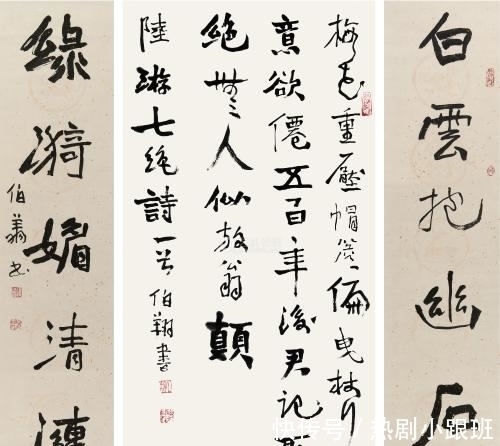 白雲抱幽石
梅花重壓帽簷偏曳杖行
意欲僊五百年後君記
絕無人似放翁顛
陸游七絕詩一首 伯翔書
綠漪媚清漣
伯翔書
快传号/热剧小跟班